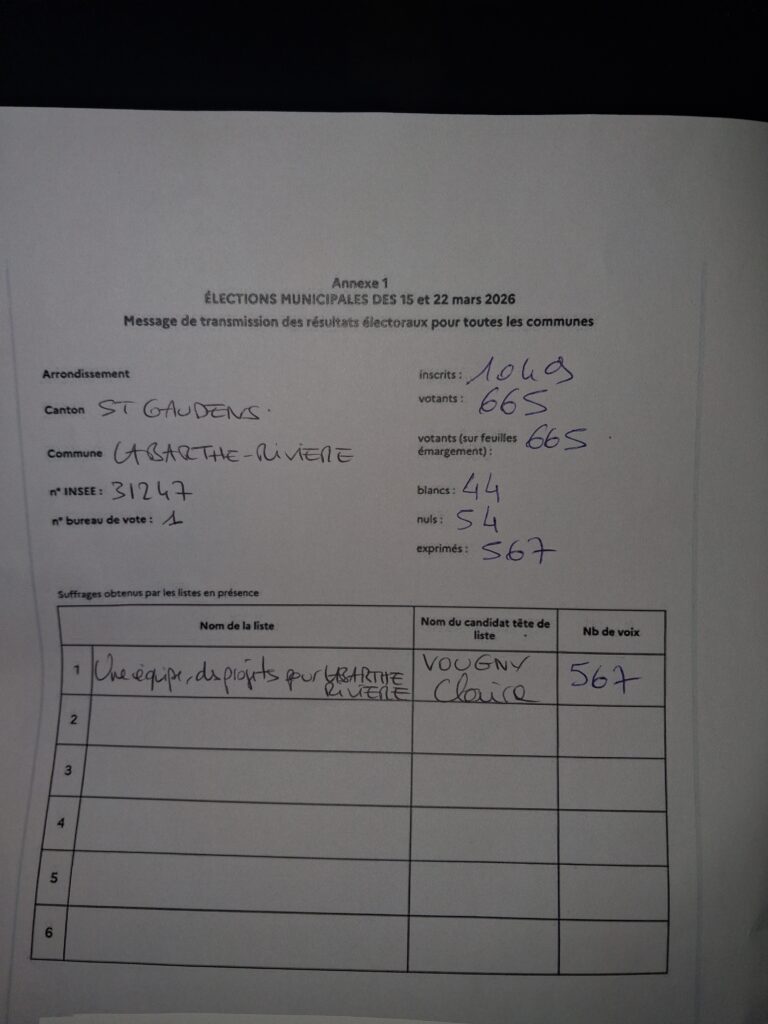 Annexe 1
ÉLECTIONS MUNICIPALES DES 15 et 22 mars 2026
Message de transmission des résultats électoraux pour toutes les communes
Arrondissement
Canton ST GAUDENS.
Commune LABARTHE-RIVIERE
n° INSEE : 31247
n° bureau de vote : 1
inscrits : 1049
votants : 665
votants (sur feuilles émargement) : 665
blancs : 44
nuls : 54
exprimés : 567
Suffrages obtenus par les listes en présence
Nom de la liste | Nom du candidat tête de liste | Nb de voix
1 | Une équipe, des projets pour LABARTHE RIVIERE | VOUGNY Claire | 567
2
3
4
5
6